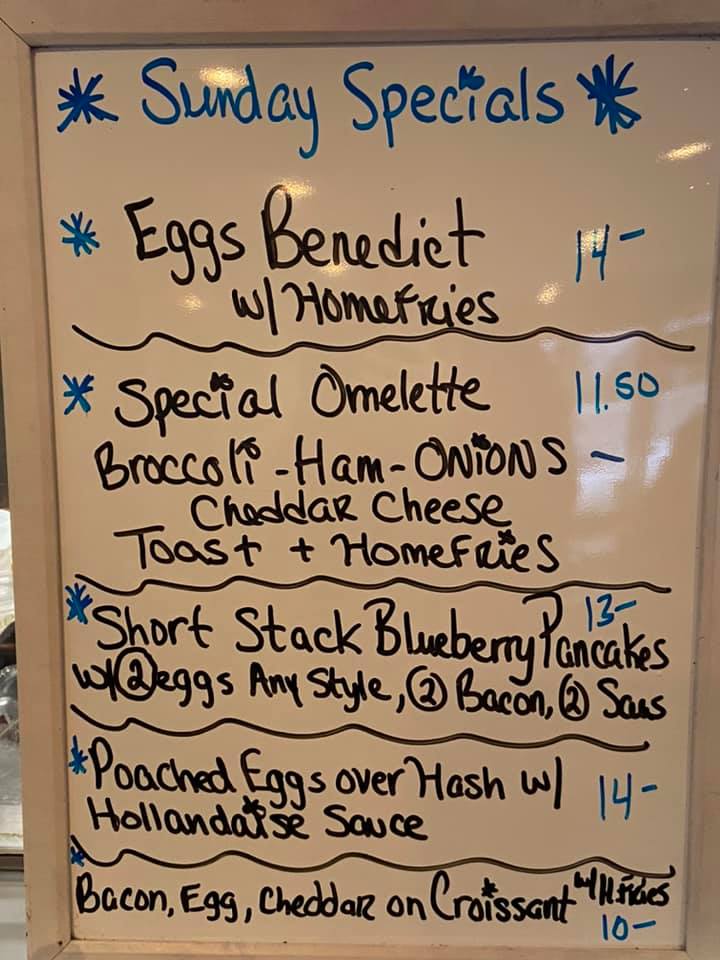 * Sunday Specials *
* Eggs Benedict 14-
w/ Homefries
* Special Omelette 11.50
Broccoli - Ham - Onions -
Cheddar Cheese
Toast + Homefries
* Short Stack Blueberry Pancakes 13-
w/ ② eggs Any Style, ② Bacon, ② Saus
* Poached Eggs over Hash w/ 14-
Hollandaise Sauce
* Bacon, Egg, Cheddar on Croissant w/ H.Fries
10-